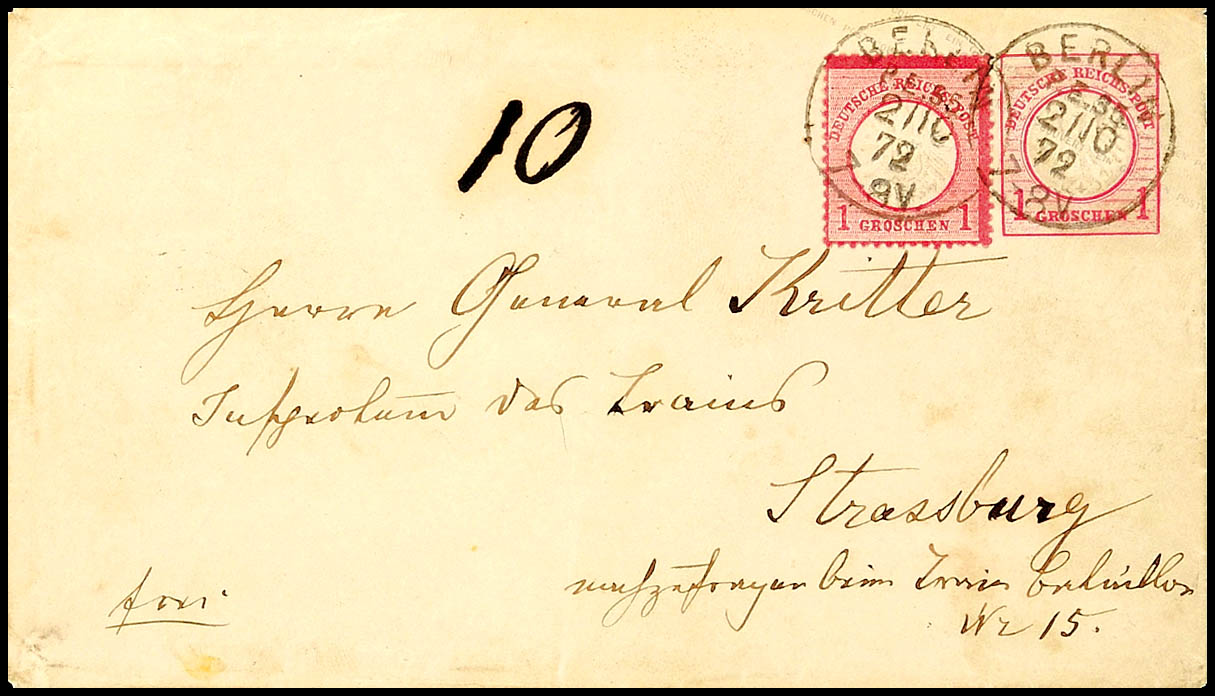 10
BERLIN
P.E.35
2/10
72
8V
DEUTSCHE REICHS-POST
1 GROSCHEN 1
BERLIN
P.E.35
2/10
72
7-8V
DEUTSCHE REICHS-POST
1 GROSCHEN 1
Herrn General Kritter
Inspecteur des Trains
Strassburg
nachzufragen beim Train Bataillon
Nr 15.
frei.